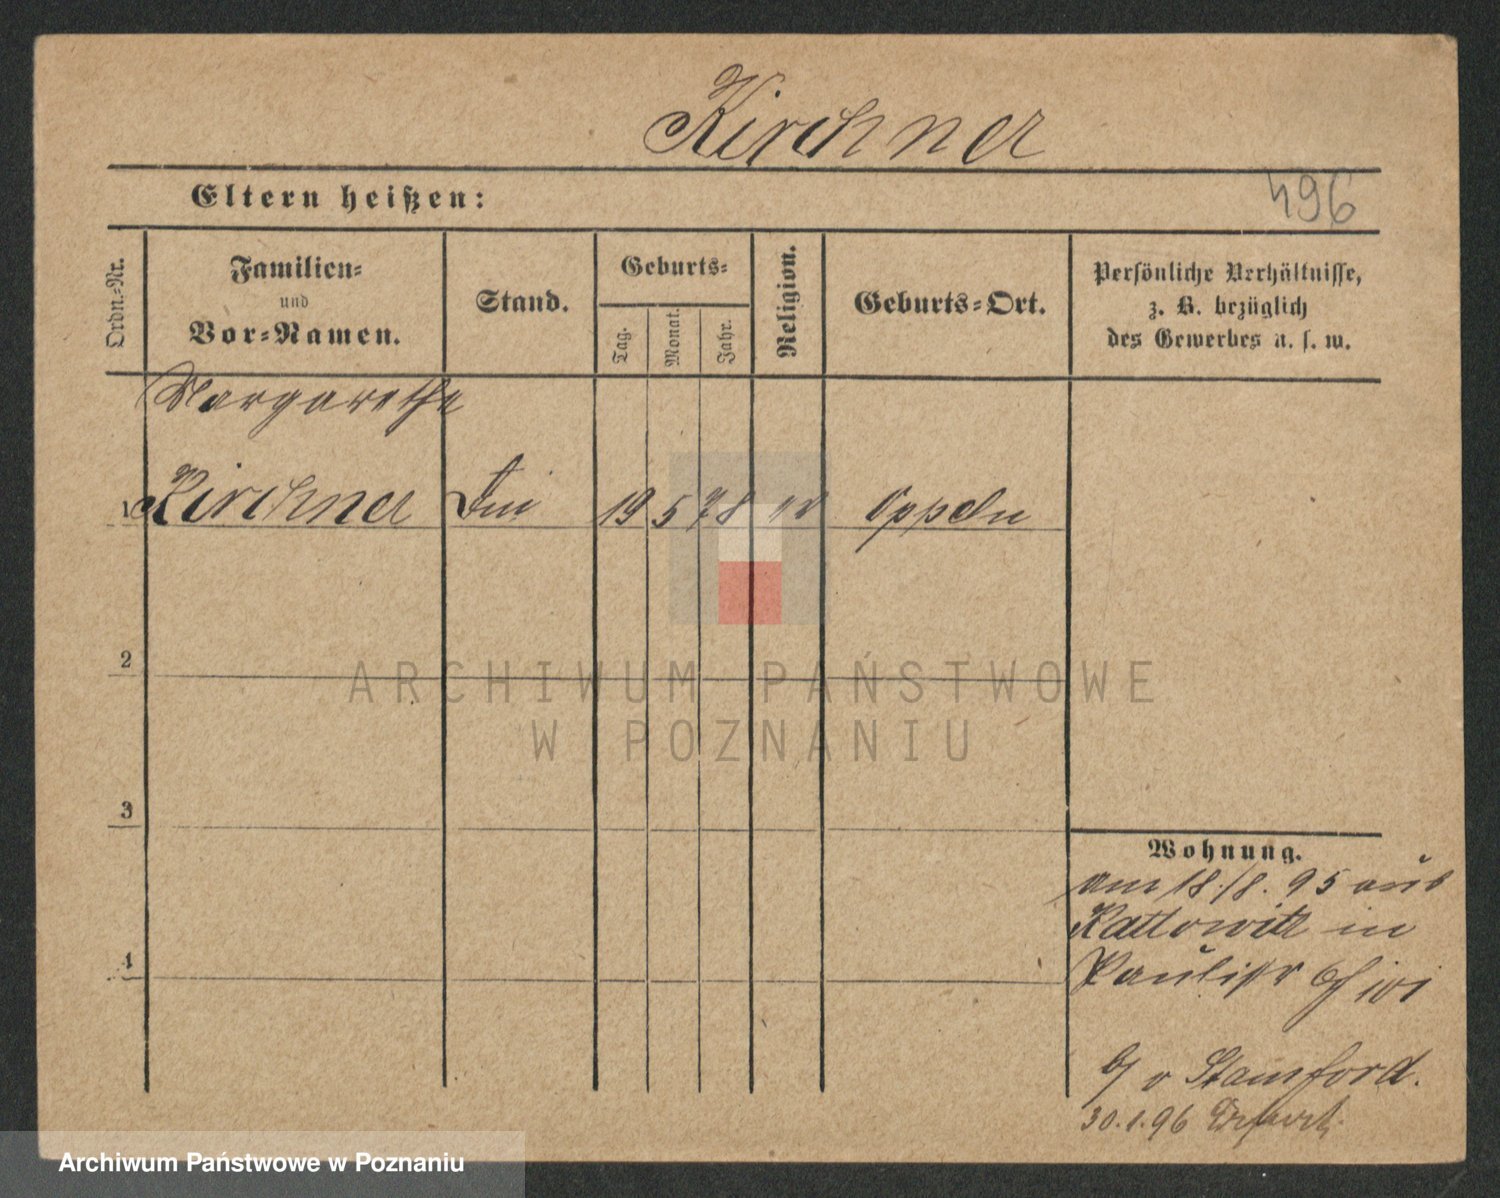 Kirchner
Eltern heißen:
496
Ordn.-Nr.
Familien-
und
Vor-Namen.
Stand.
Geburts-
Tag.
Monat.
Jahr.
Religion.
Geburts-Ort.
Persönliche Verhältnisse,
z. B. bezüglich
des Gewerbes u. s. w.
Margarethe
1 Kirchner 19 5 78 Oppeln
2
ARCHIWUM PAŃSTWOWE
W POZNANIU
3
Wohnung.
am 18./8. 95 aus
Kattowitz in
Paulistr
4
v Stamford.
30.1.96
Archiwum Państwowe w Poznaniu